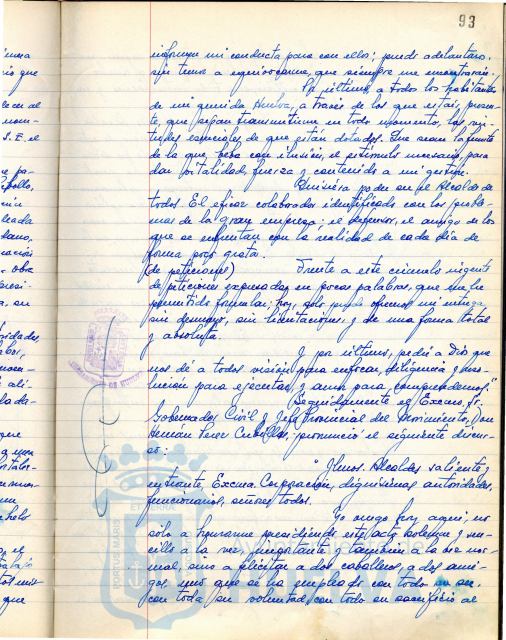 93
informar mi conducta para con ellos; puedo adelantaros,
sin temor a equivocarme, que siempre me encontraréis.
Por último, a todos los habitantes
de mi querida Huelva, a través de los que estáis presen-
te, que sepan transmitirme en todo momento, las vir-
tudes especiales de que están dotados. Que sean la fuente
de la que, beba con ilusión, el estímulo necesario, para
dar vitalidad, fuerza y contenido a mi gestión.
Quisiera poder ser el Alcalde de
todos. El eficaz colaborador identificado con los proble-
mas de la gran empresa; el defensor, el amigo de los
que se enfrentan con la realidad de cada día de
forma poco grata.
(de peticiones) Frente a este cúmulo ingente
de peticiones expresadas en pocas palabras, que me he
permitido formular; hoy, solo puedo ofreceros mi entrega
sin desmayo, sin limitaciones y de una forma total
y absoluta.
Y por último, pediré a Dios que
nos dé a todos visión para enfocar, diligencia y reso-
lución para ejecutar y amor para comprendernos."
Seguidamente el Excmo. Sr.
Gobernador Civil y Jefe Provincial del Movimiento, Don
Hernán Pérez Cubillas, pronunció el siguiente discur-
so:
"Ilmos. Alcaldes saliente y
entrante, Excma. Corporación, dignísimas autoridades,
funcionarios, señores todos.
Yo vengo hoy aquí, no
sólo a honrarme presidiendo este acto solemne y sen-
cillo a la vez, importante y también a la vez nor-
mal, sino a felicitar a dos caballeros, a dos ami-
gos, uno que se ha empleado con todo su ser,
con toda su voluntad, con todo su sacrificio al
PORTUS MARIS
ET TERRAE